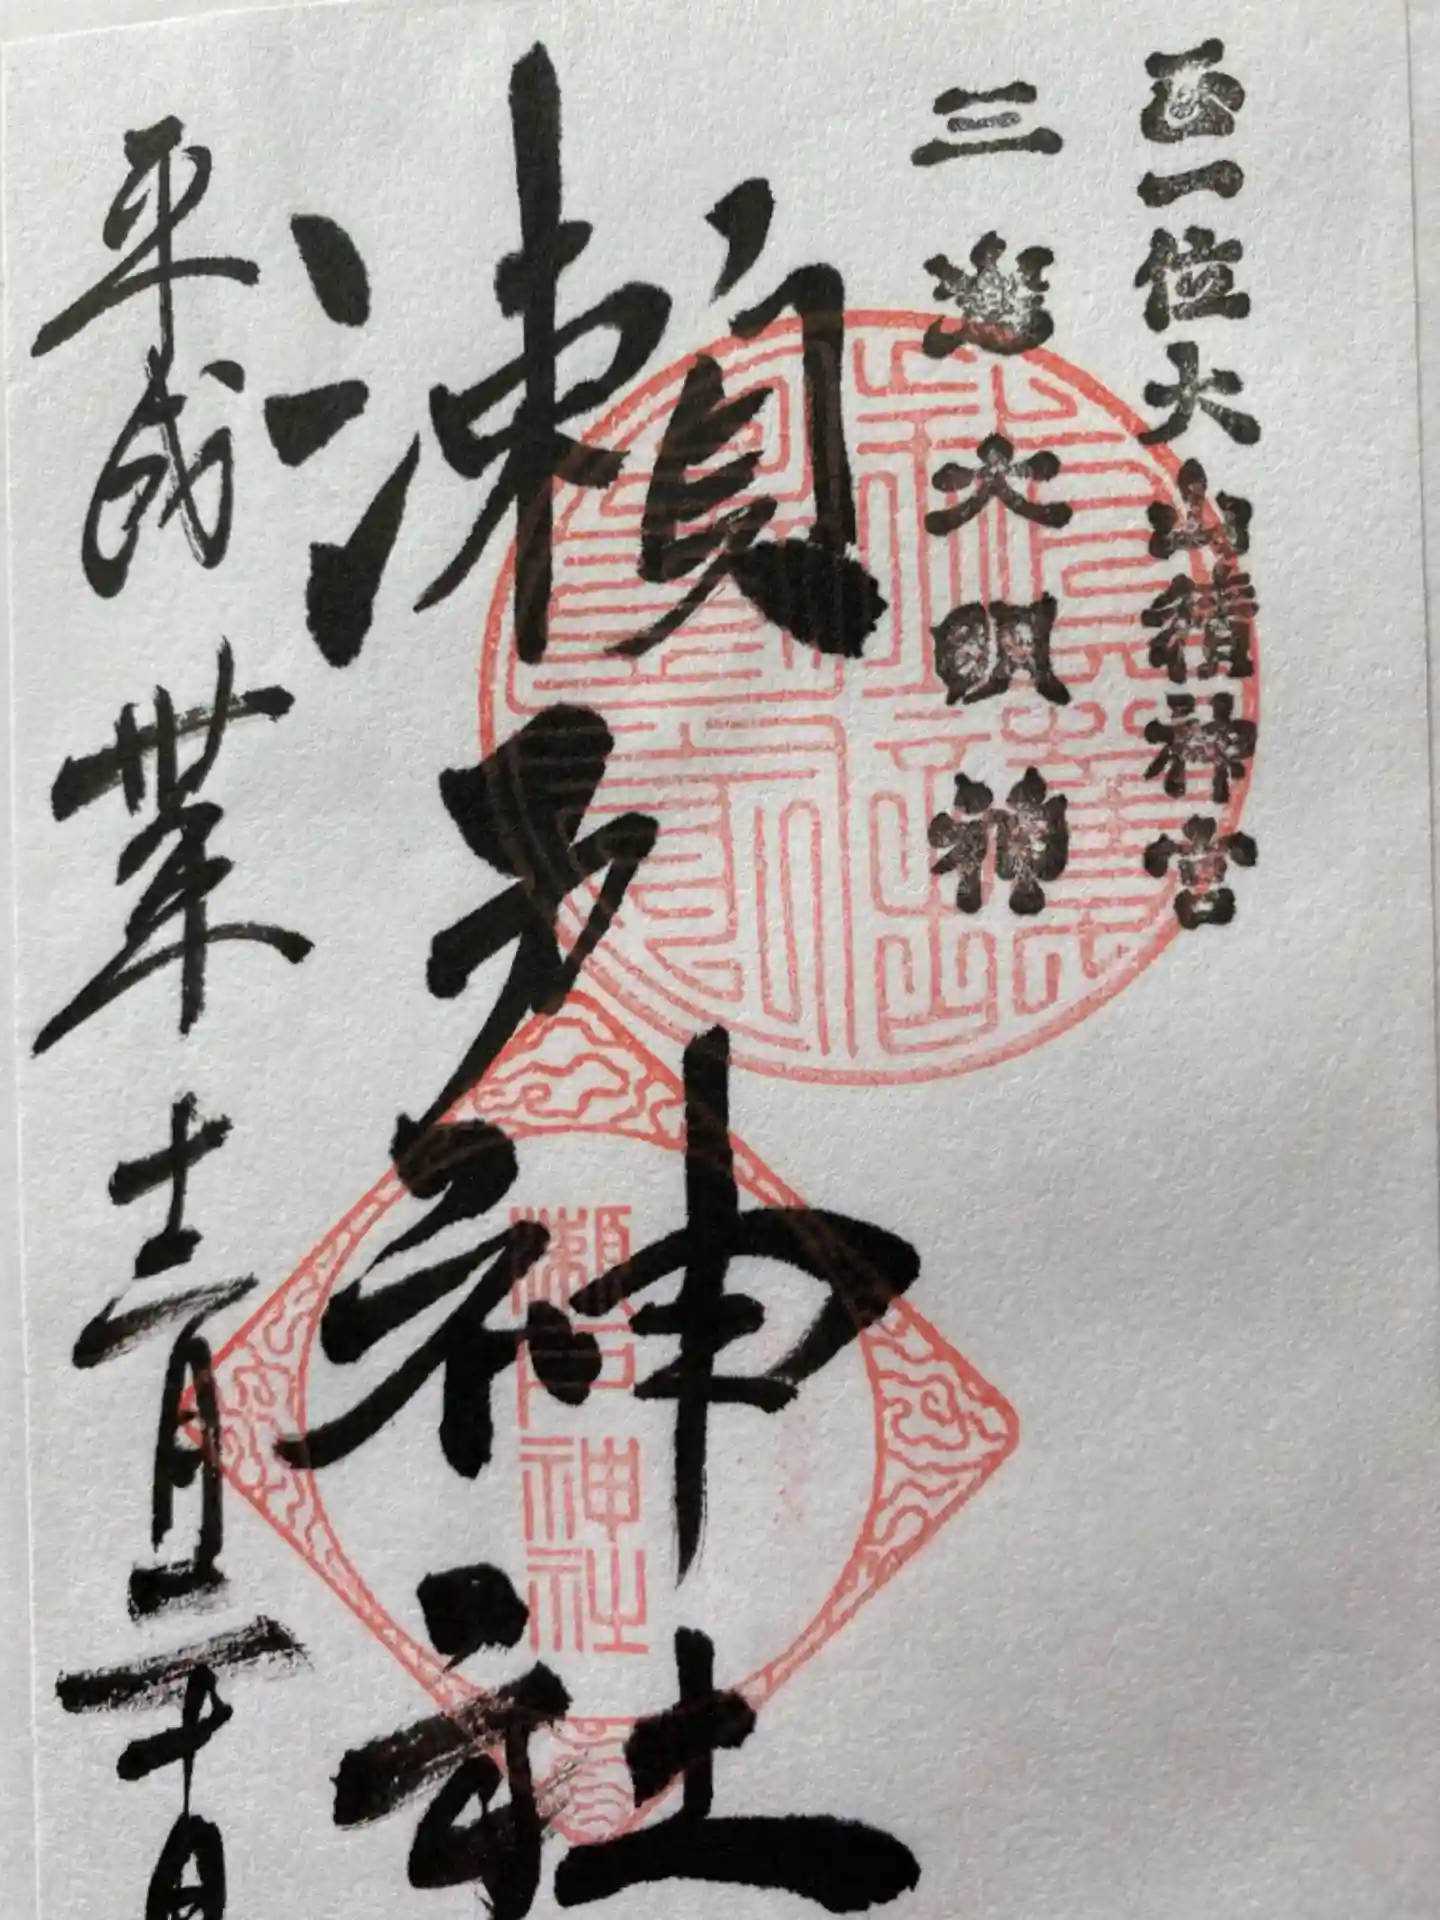 正一位大山積神宮
三嶌大明神
瀬戸神社
平成丗年十二月二十日
瀬戸神社